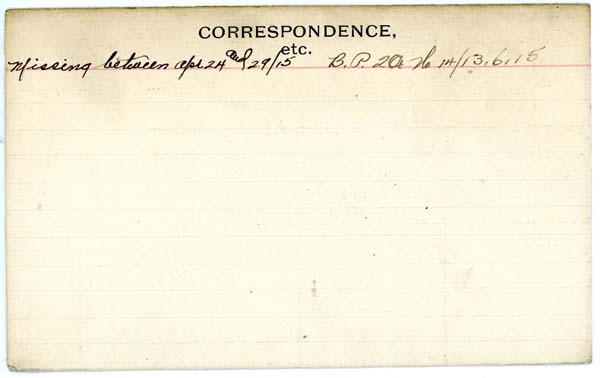 CORRESPONDENCE,
etc.
Missing between Apl 24 and 29/15 B. P. 14/13.6.15